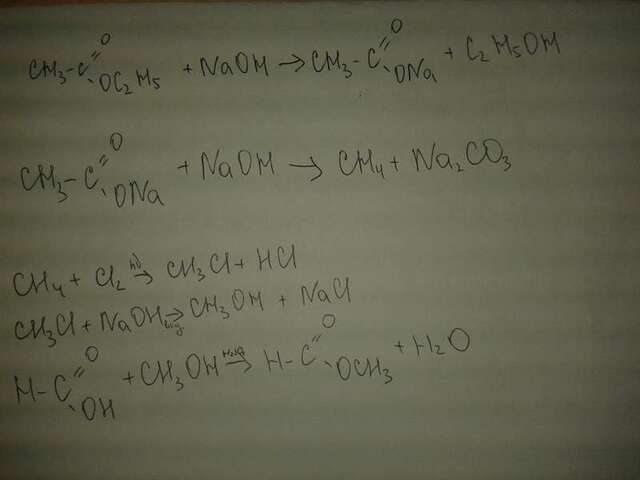 CH3-C=O OC2H5 + NaOH → CH3-C=O ONa + C2H5OH
CH3-C=O ONa + NaOH → CH4 + Na2CO3
CH4 + Cl2 →hν CH3Cl + HCl
CH3Cl + NaOH → CH3OH + NaCl
H-C=O OH + CH3OH → H-C=O OCH3 + H2O